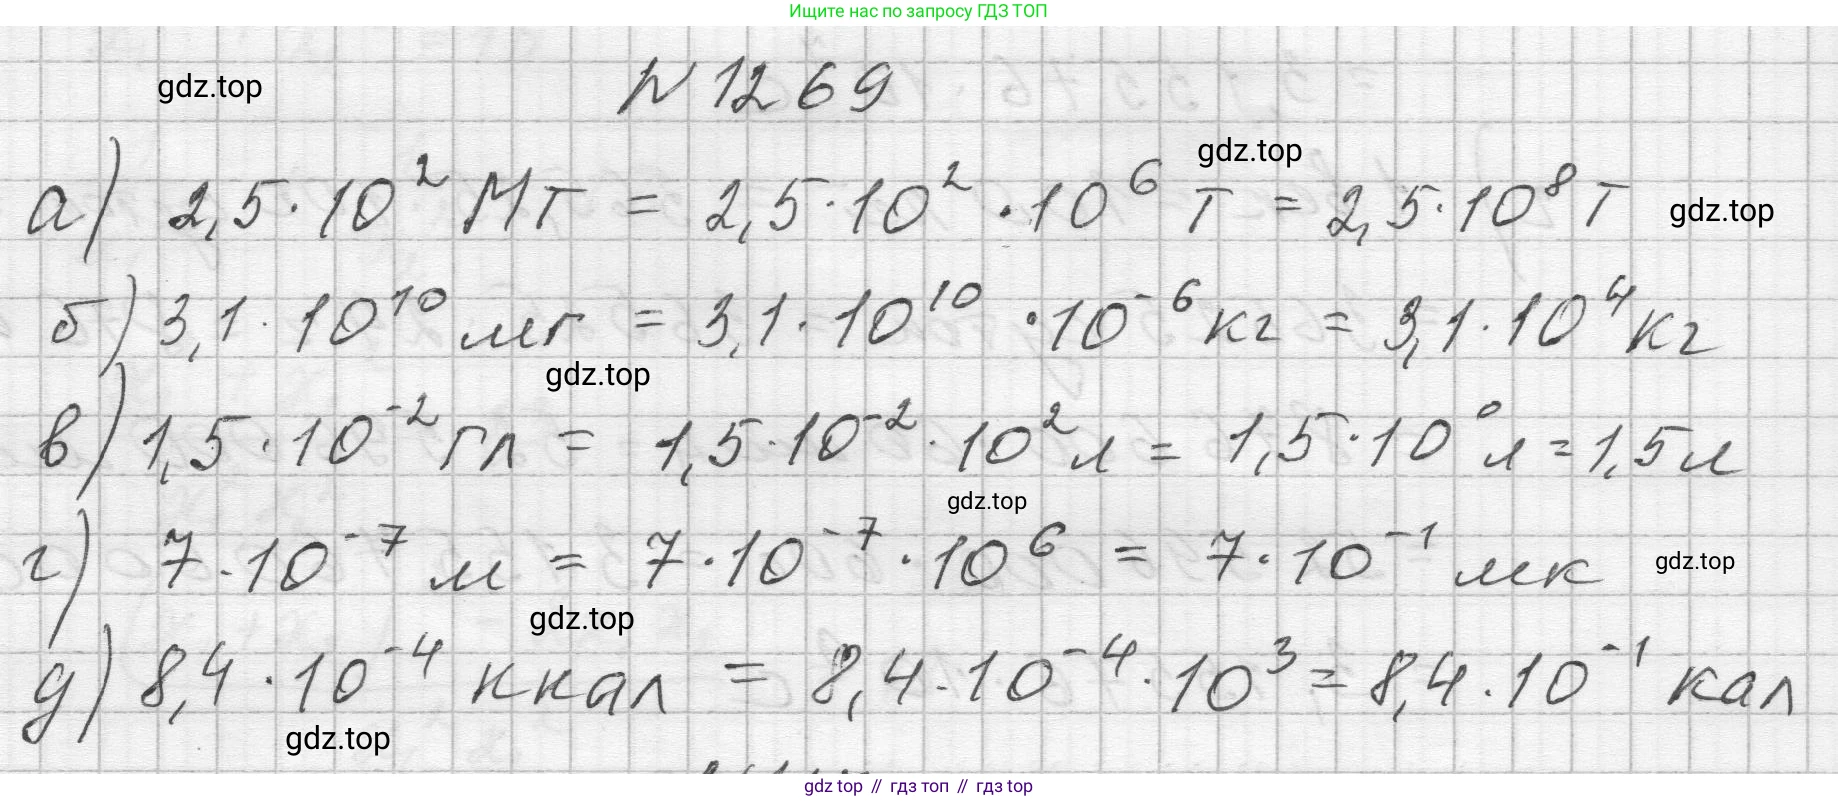 Ищите нас по запросу ГДЗ ТОП
gdz.top
N 1269
gdz.top
а) 2,5·10² Мт = 2,5·10²·10⁶ т = 2,5·10⁸ т
gdz.top
б) 3,1·10¹⁰ мг = 3,1·10¹⁰·10⁻⁶ кг = 3,1·10⁴ кг
gdz.top
в) 1,5·10⁻² гл = 1,5·10⁻²·10² л = 1,5·10⁰ л = 1,5 л
gdz.top
г) 7·10⁻⁷ м = 7·10⁻⁷·10⁶ = 7·10⁻¹ мк
gdz.top
gdz.top
д) 8,4·10⁻⁴ ккал = 8,4·10⁻⁴·10³ = 8,4·10⁻¹ кал
gdz.top
gdz top // гдз топ // гдз top